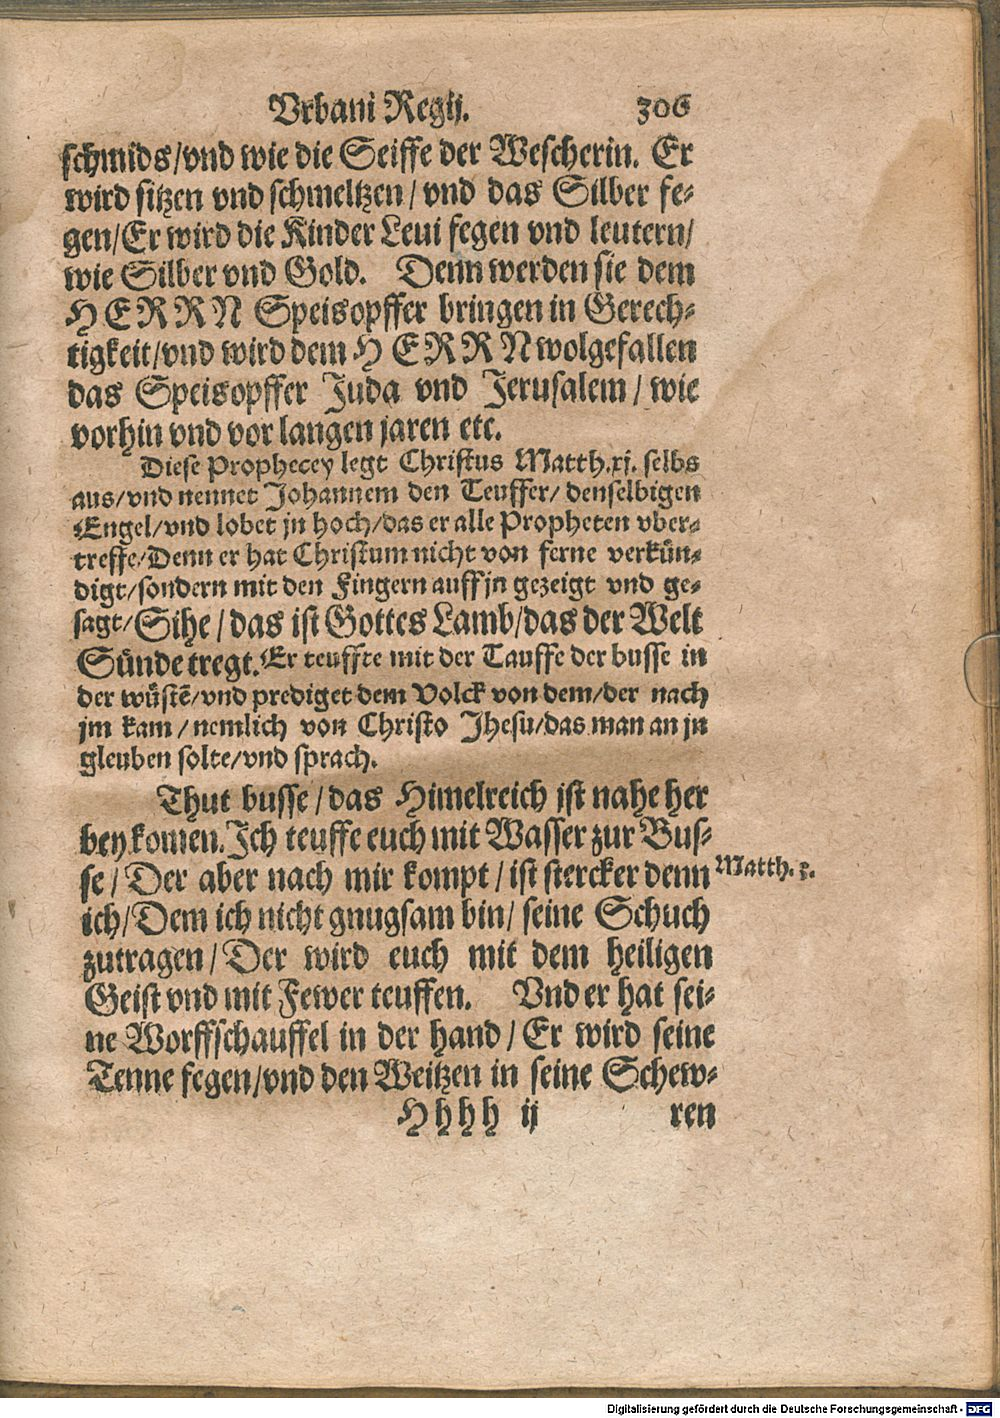 Vrbani Regij. 306
schmids/vnd wie die Seiffe der Wescherin. Er
wird sitzen vnd schmeltzen/ vnd das Silber fe-
gen/Er wird die Kinder Leui fegen vnd leutern/
wie Silber vnd Gold. Denn werden sie dem
HERRN Speisopffer bringen in Gerech-
tigkeit/vnd wird dem HERRN wolgefallen
das Speisopffer Juda vnd Jerusalem/ wie
vorhin vnd vor langen jaren etc.
Diese Prophecey legt Christus Matth.xj. selbs
aus/vnd nennet Johannem den Teuffer/ denselbigen
Engel/vnd lobet jn hoch/das er alle Propheten vber-
treffe/Denn er hat Christum nicht von ferne verkün-
digt/sondern mit den Fingern auff jn gezeigt vnd ge-
sagt/ Sihe/ das ist Gottes Lamb/das der Welt
Sünde tregt. Er teuffte mit der Tauffe der busse in
der wüstē/vnd prediget dem Volck von dem/der nach
jm kam/nemlich von Christo Jhesu/das man an jn
gleuben solte/vnd sprach.
Thut busse/das Himelreich ist nahe her
bey komen. Ich teuffe euch mit Wasser zur Bus-
se/ Der aber nach mir kompt/ist stercker denn
Matth. 3.
ich/Dem ich nicht gnugsam bin/ seine Schuch
zutragen/ Der wird euch mit dem heiligen
Geist vnd mit Fewer teuffen. Vnd er hat sei-
ne Worffschauffel in der hand/ Er wird seine
Tenne fegen/vnd den Weitzen in seine Schew-
Hhhh ij ren
Digitalisierung gefördert durch die Deutsche Forschungsgemeinschaft - DFG